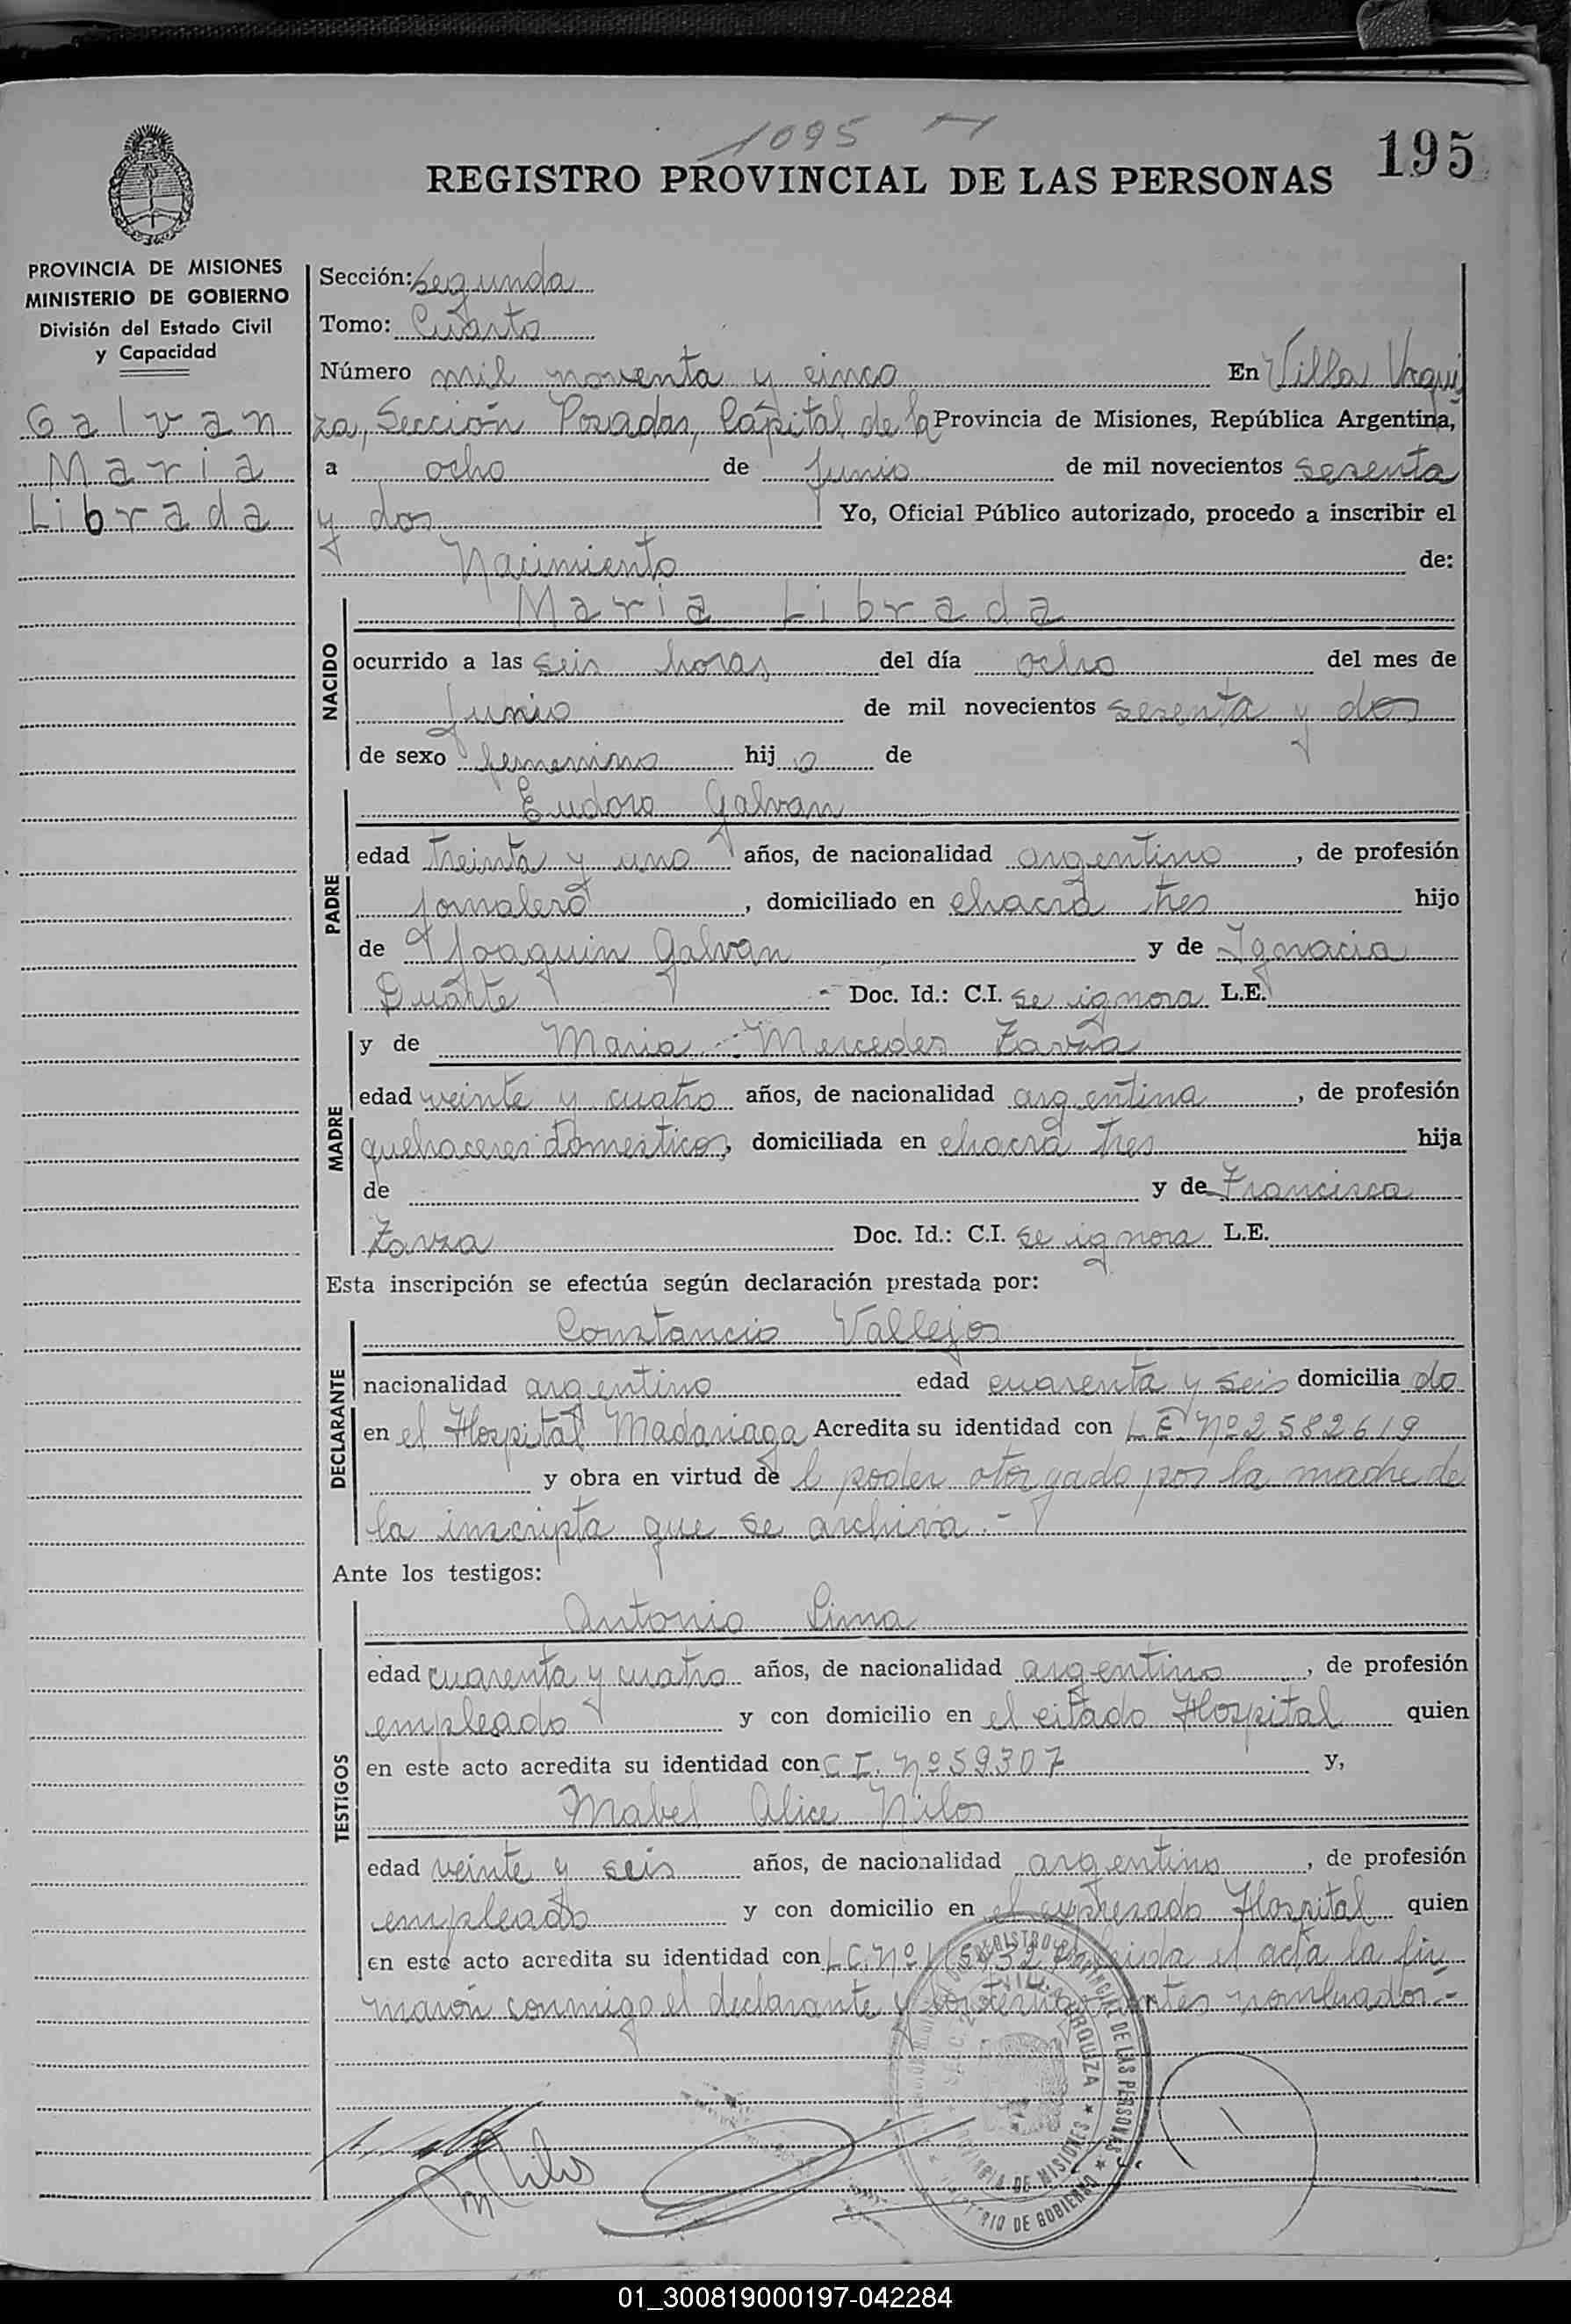 1095
195
REGISTRO PROVINCIAL DE LAS PERSONAS
PROVINCIA DE MISIONES
MINISTERIO DE GOBIERNO
División del Estado Civil
y Capacidad
Galvan
Maria
Librada
Sección: Segunda
Tomo: Cuarto
Número mil noventa y cinco En Villa Urqui
za, Sección Posadas, Capital de la Provincia de Misiones, República Argentina,
a ocho de Junio de mil novecientos sesenta
y dos Yo, Oficial Público autorizado, procedo a inscribir el
Nacimiento de:
NACIDO
Maria Librada
ocurrido a las seis horas del día ocho del mes de
Junio de mil novecientos sesenta y dos
de sexo femenino hij a de
PADRE
Eudoro Galvan
edad treinta y uno años, de nacionalidad argentino, de profesión
jornalero, domiciliado en chacra tres hijo
de Joaquin Galvan y de Ignacia
Duarte Doc. Id.: C.I. se ignora L.E.
MADRE
y de Maria Mercedes
edad veinte y cuatro años, de nacionalidad argentina, de profesión
quehaceres domesticos, domiciliada en chacra tres hija
de y de Francisca
Doc. Id.: C.I. se ignora L.E.
Esta inscripción se efectúa según declaración prestada por:
DECLARANTE
Constancio Vallejos
nacionalidad argentino edad cuarenta y seis domicilia do
en el Hospital Madariaga Acredita su identidad con L.E. Nº 2582619
y obra en virtud de l poder otorgado por la madre de
la inscripta que se archiva.-
Ante los testigos:
TESTIGOS
Antonio Lima
edad cuarenta y cuatro años, de nacionalidad argentino, de profesión
empleado y con domicilio en el citado Hospital quien
en este acto acredita su identidad con C.I. Nº 59307 y,
Mabel Alice Nilos
edad veinte y seis años, de nacionalidad argentina, de profesión
empleada y con domicilio en el expresado Hospital quien
en este acto acredita su identidad con L.C. Nº el acta la fir
maron conmigo el declarante y antes nombrados.-
REGISTRO PROVINCIAL DE LAS PERSONAS
VILLA URQUIZA
PROVINCIA DE MISIONES
MINISTERIO DE GOBIERNO
01_300819000197-042284